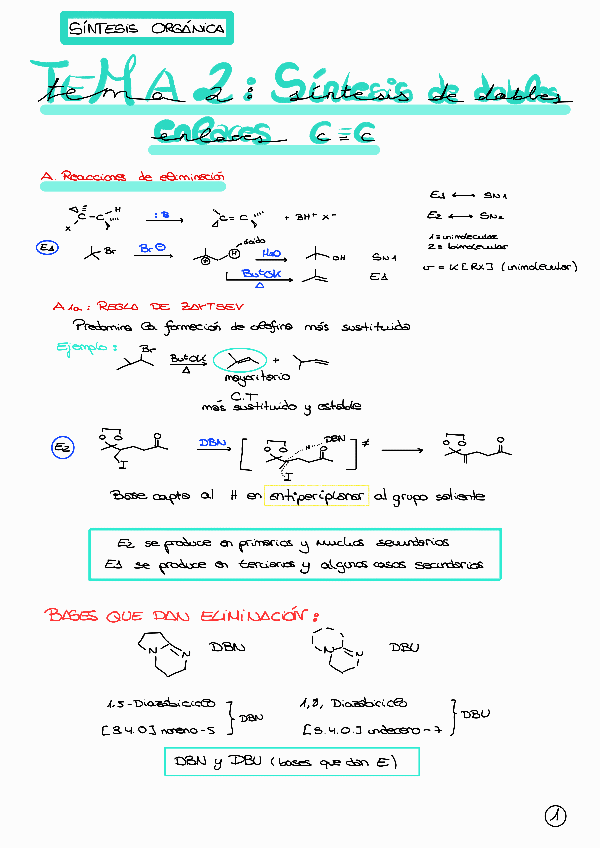 SÍNTESIS ORGÁNICA
TEMA 2: Síntesis de dobles
tema 2: síntesis de dobles
enlaces C=C
A. Reacciones de eliminación
E1 ⟷ SN1
:B
C-C H X
C=C + BH⁺ X⁻
E2 ⟷ SN2
1= unimolecular
2= bimolecular
E1 Br Br⊖ ácido H H₂O OH SN1
v = K[RX] (unimolecular)
ButOK Δ E1
A.1a: REGLA DE ZAYTSEV
Predomina la formación de olefina más sustituida
Ejemplo: Br ButOK Δ +
mayoritario
C.T
más sustituido y estable
E2 O O O I DBN [ O O O H DBN I ]≠ O O O
Base capta al H en antiperiplanar al grupo saliente
E2 se produce en primarios y muchos secundarios
E1 se produce en terciarios y algunos casos secundarios
BASES QUE DAN ELIMINACIÓN:
N N DBN N N DBU
1.5-Diazabiciclo 1,8, Diazabiciclo
DBN DBU
[3.4.0] noneno-5 [5.4.0.] undeceno-7
DBN y DBU (bases que dan E)
1